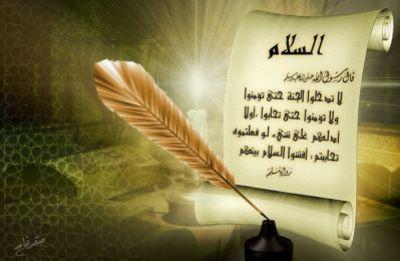 السلام
قال رسول الله صلى الله عليه وسلم
لا تدخلوا الجنة حتى تؤمنوا
ولا تؤمنوا حتى تحابوا، أولا
أدلكم على شيء لو فعلتموه
تحاببتم، أفشوا السلام بينكم
رواه مسلم